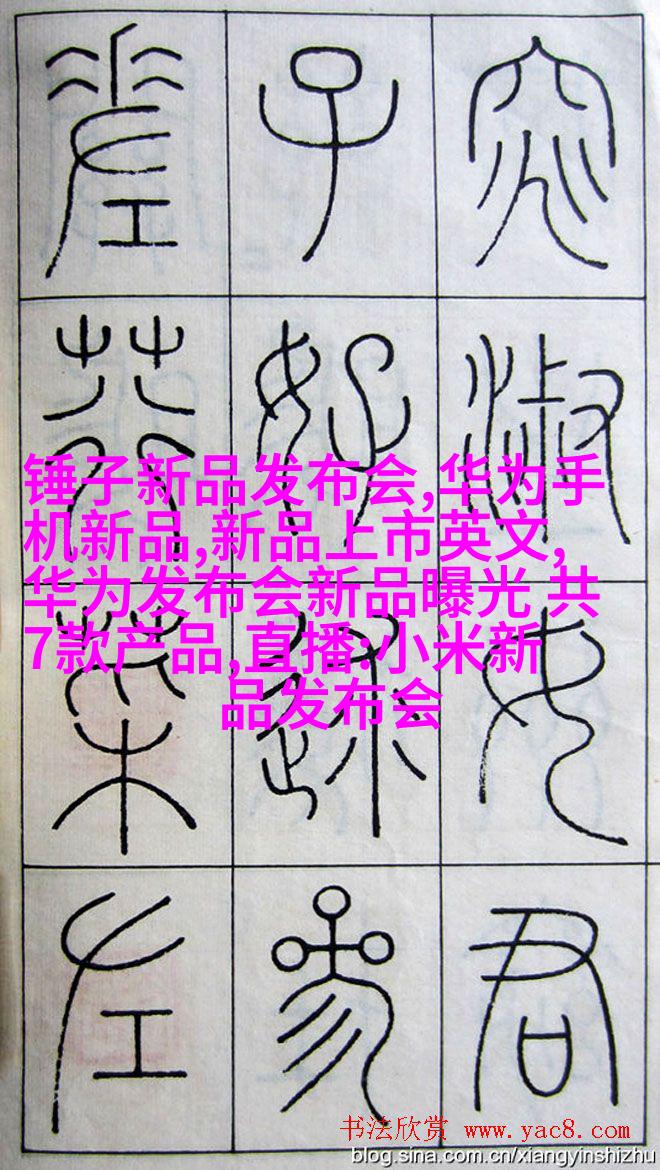 窕淑女君
子好逑參
差荇菜左
锤子新品发布会,华为手
机新品,新品上市英文,
华为发布会新品曝光 共
7款产品,直播:小米新
品发布会
书法欣赏 www.yac8.com
blog.sina.com.cn/xiangyinshizhu